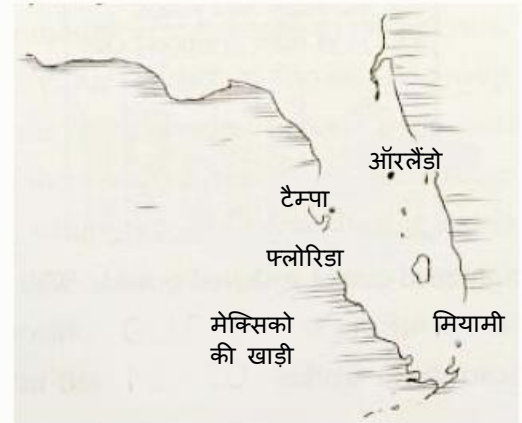 ऑरलैंडो
टैम्पा
फ्लोरिडा
मेक्सिको
की खाड़ी
मियामी